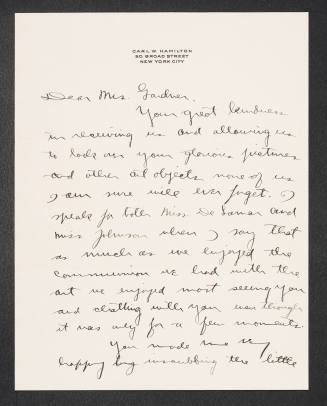 CARL W. HAMILTON
50 BROAD STREET
NEW YORK CITY
Dear Mrs. Gardner.
Your great kindness
in receiving us and allowing us
to look on your glorious pictures
and other art objects none of us
I am sure will ever forget. I
speak for both Miss De Lamar and
Miss Johnson when I say that
as much as we enjoyed the
communion we had with the
art we enjoyed most seeing you
and chatting with you even though
it was only for a few moments.
You made me very
happy by inscribing the little